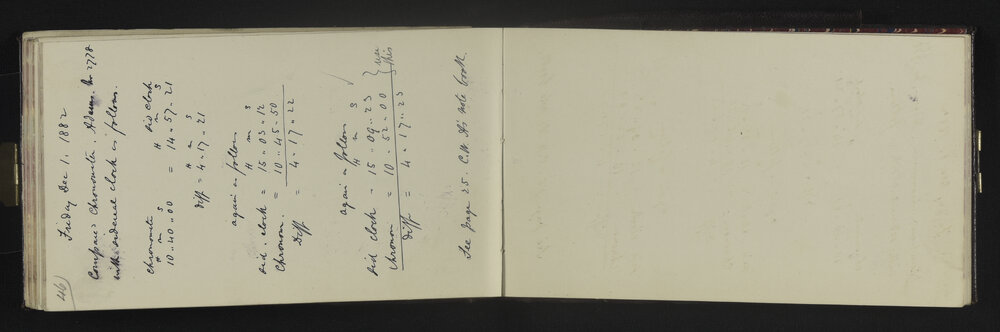 46
Friday Dec 1. 1882
Compared Chronometer. Adams. No 2778
with sidereal clock as follows.
chronometer sid clock
H m s H m s
10..40..00 = 14..57..21
H m s
diff = 4..17..21
again as follows
H m s
sid. clock = 15..03..12
Chronom. = 10..45..50
Diff = 4..17..22
again as follows
H m s
sid clock = 15..09..23 } use
chronom = 10..52..00 } this
diff = 4..17..23
See page 25. C.W. his note book.